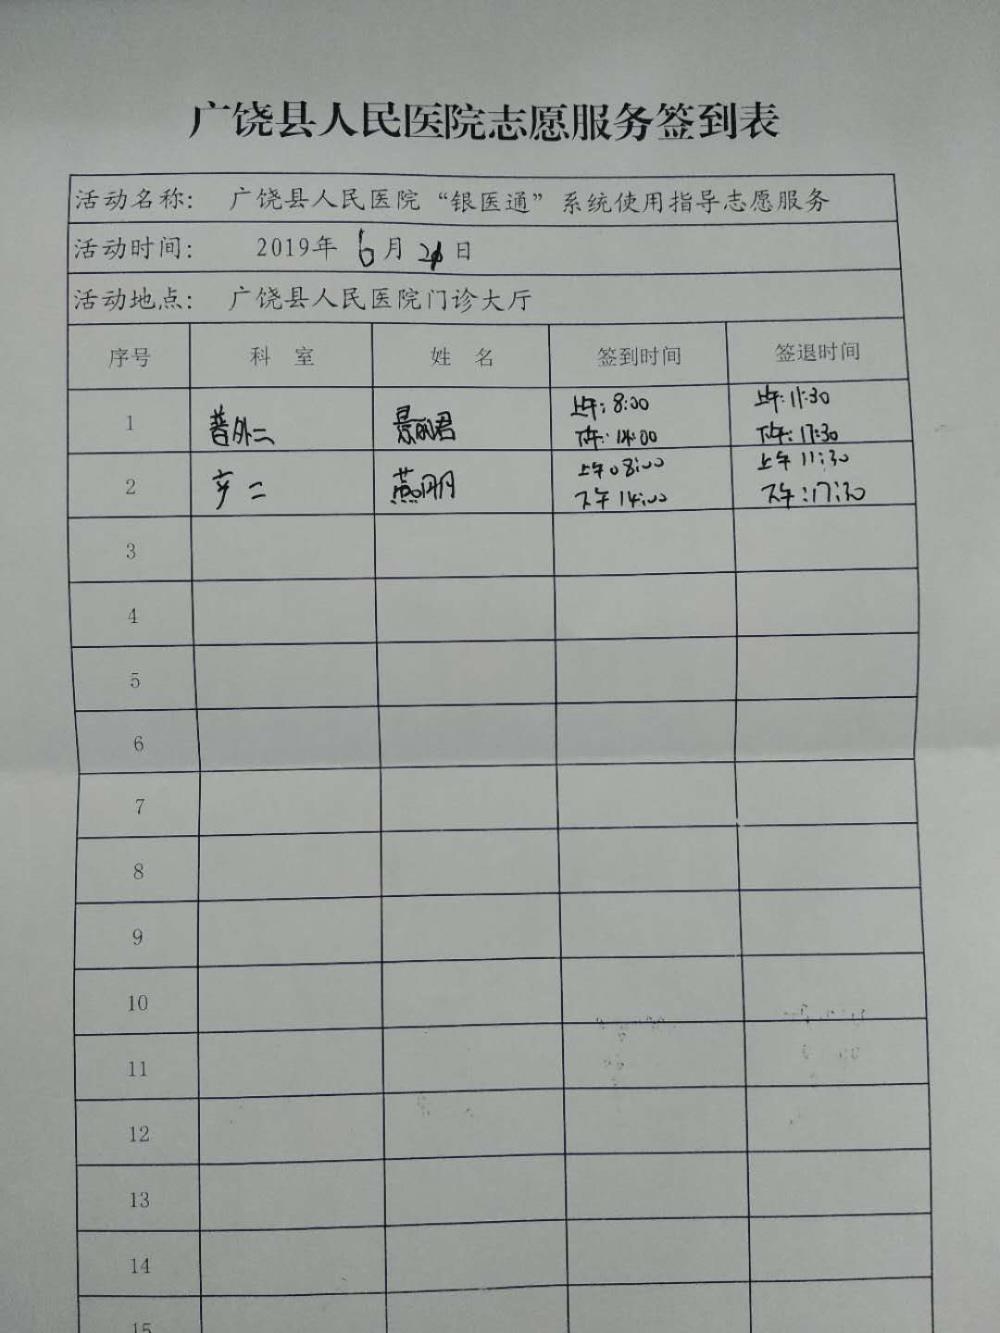 广饶县人民医院志愿服务签到表
活动名称: 广饶县人民医院“银医通”系统使用指导志愿服务
活动时间: 2019年 6月 日
活动地点: 广饶县人民医院门诊大厅
序号 科 室 姓 名 签到时间 签退时间
1 普外二 上午:8:00 上午:11:30
下午:14:00 下午:17:30
2 二 上午08:00 上午11:30
下午14:00 下午:17:30
3
4
5
6
7
8
9
10
11
12
13
14
15